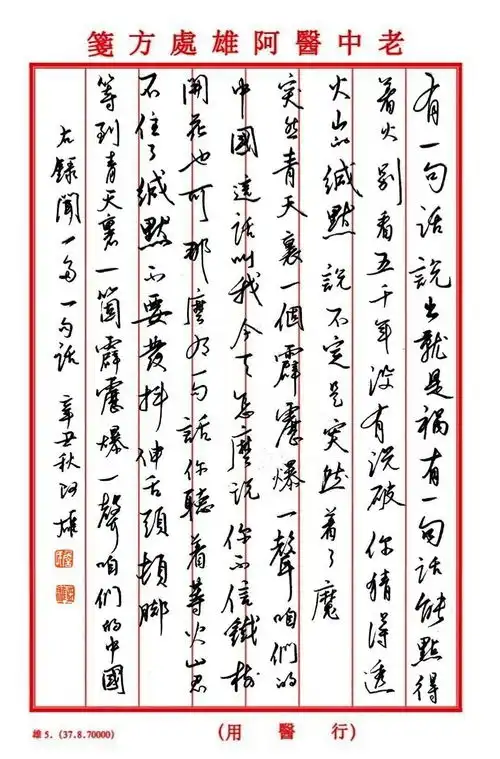 老中醫阿雄處方箋
有一句話說出就是禍有一句話能點得
着火別看五千年沒有說破你猜得透
火山的緘默說不定是突然着了魔
突然青天裏一個霹靂爆一聲咱們的
中國這話叫我今天怎麼說你不信鐵樹
開花也可那麼有一句話你聽着等火山忍
不住了緘默不要發抖伸舌頭頓腳
等到青天裏一箇霹靂爆一聲咱們的中國
右錄聞一多一句話 辛丑秋阿雄
(行醫用)
雄5. (37.8.70000)